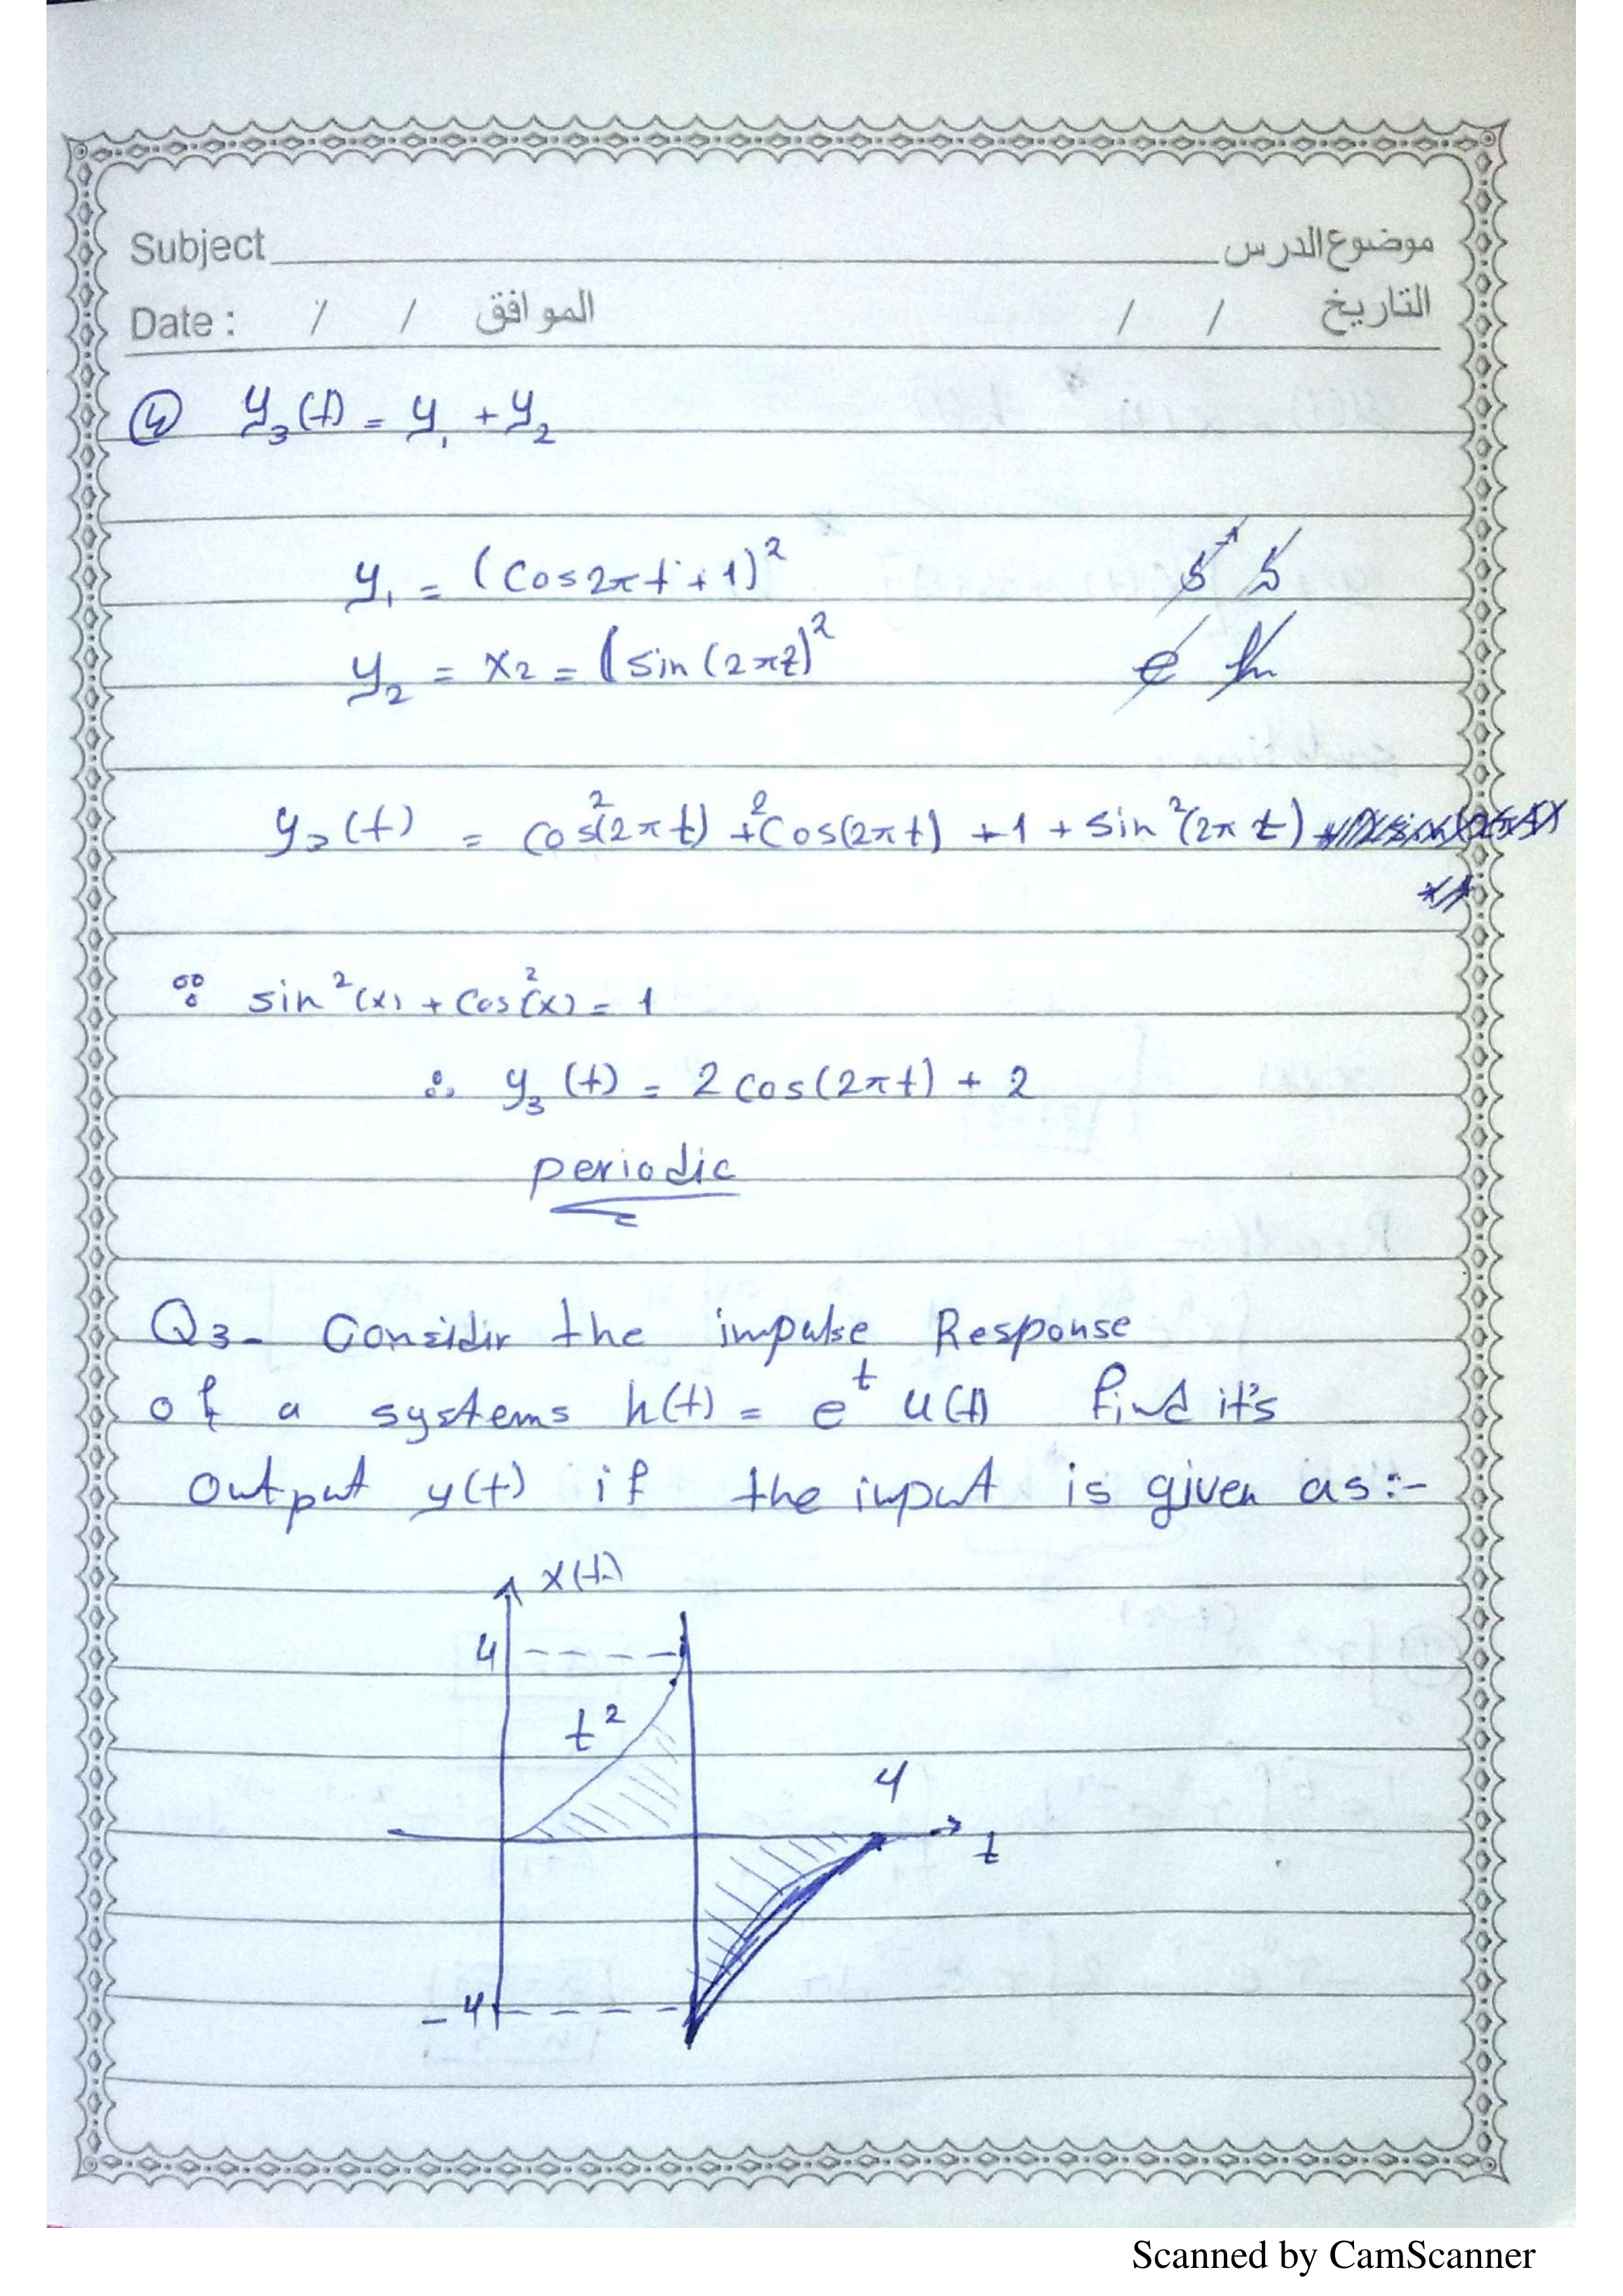 Subject موضوع الدرس
Date : / / الموافق / / التاريخ
④ y₃(t) = y₁ + y₂
y₁ = (Cos2πt + 1)²
y₂ = x₂ = (sin(2πt)²
y₃(t) = cos²(2πt) + 2Cos(2πt) + 1 + sin²(2πt)
∵ sin²(x) + Cos²(x) = 1
∴ y₃(t) = 2 cos(2πt) + 2
periodic
Q3- Considir the impulse Response
of a systems h(t) = eᵗ u(t) find it's
output y(t) if the input is given as:-
x(t)
4
t²
4
t
-4
Scanned by CamScanner